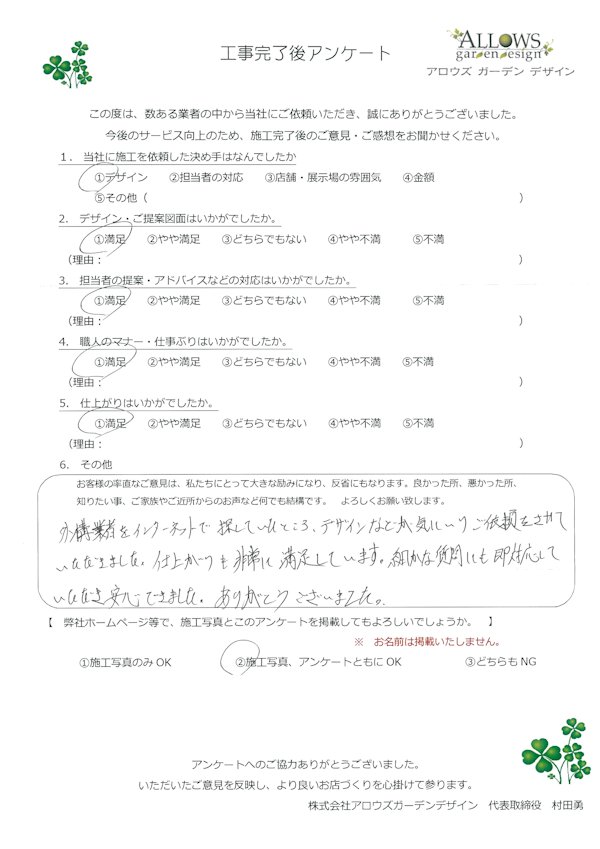 工事完了後アンケート
ALLOWS
garden design
アロウズ ガーデン デザイン
この度は、数ある業者の中から当社にご依頼いただき、誠にありがとうございました。
今後のサービス向上のため、施工完了後のご意見・ご感想をお聞かせください。
1. 当社に施工を依頼した決め手はなんでしたか
①デザイン ②担当者の対応 ③店舗・展示場の雰囲気 ④金額
⑤その他（ ）
2. デザイン・ご提案図面はいかがでしたか。
①満足 ②やや満足 ③どちらでもない ④やや不満 ⑤不満
（理由： ）
3. 担当者の提案・アドバイスなどの対応はいかがでしたか。
①満足 ②やや満足 ③どちらでもない ④やや不満 ⑤不満
（理由： ）
4. 職人のマナー・仕事ぶりはいかがでしたか。
①満足 ②やや満足 ③どちらでもない ④やや不満 ⑤不満
（理由： ）
5. 仕上がりはいかがでしたか。
①満足 ②やや満足 ③どちらでもない ④やや不満 ⑤不満
（理由： ）
6. その他
お客様の率直なご意見は、私たちにとって大きな励みになり、反省にもなります。良かった所、悪かった所、
知りたい事、ご家族やご近所からのお声など何でも結構です。 よろしくお願い致します。
外構業者をインターネットで探していたところ、デザインなどが気にいりご依頼をさせて
いただきました。仕上がりも非常に満足しています。細かな質問にも即対応して
いただき安心できました。ありがとうございました。
【 弊社ホームページ等で、施工写真とこのアンケートを掲載してもよろしいでしょうか。 】
※ お名前は掲載いたしません。
①施工写真のみ OK ②施工写真、アンケートともに OK ③どちらも NG
アンケートへのご協力ありがとうございました。
いただいたご意見を反映し、より良いお店づくりを心掛けて参ります。
株式会社アロウズガーデンデザイン 代表取締役 村田勇